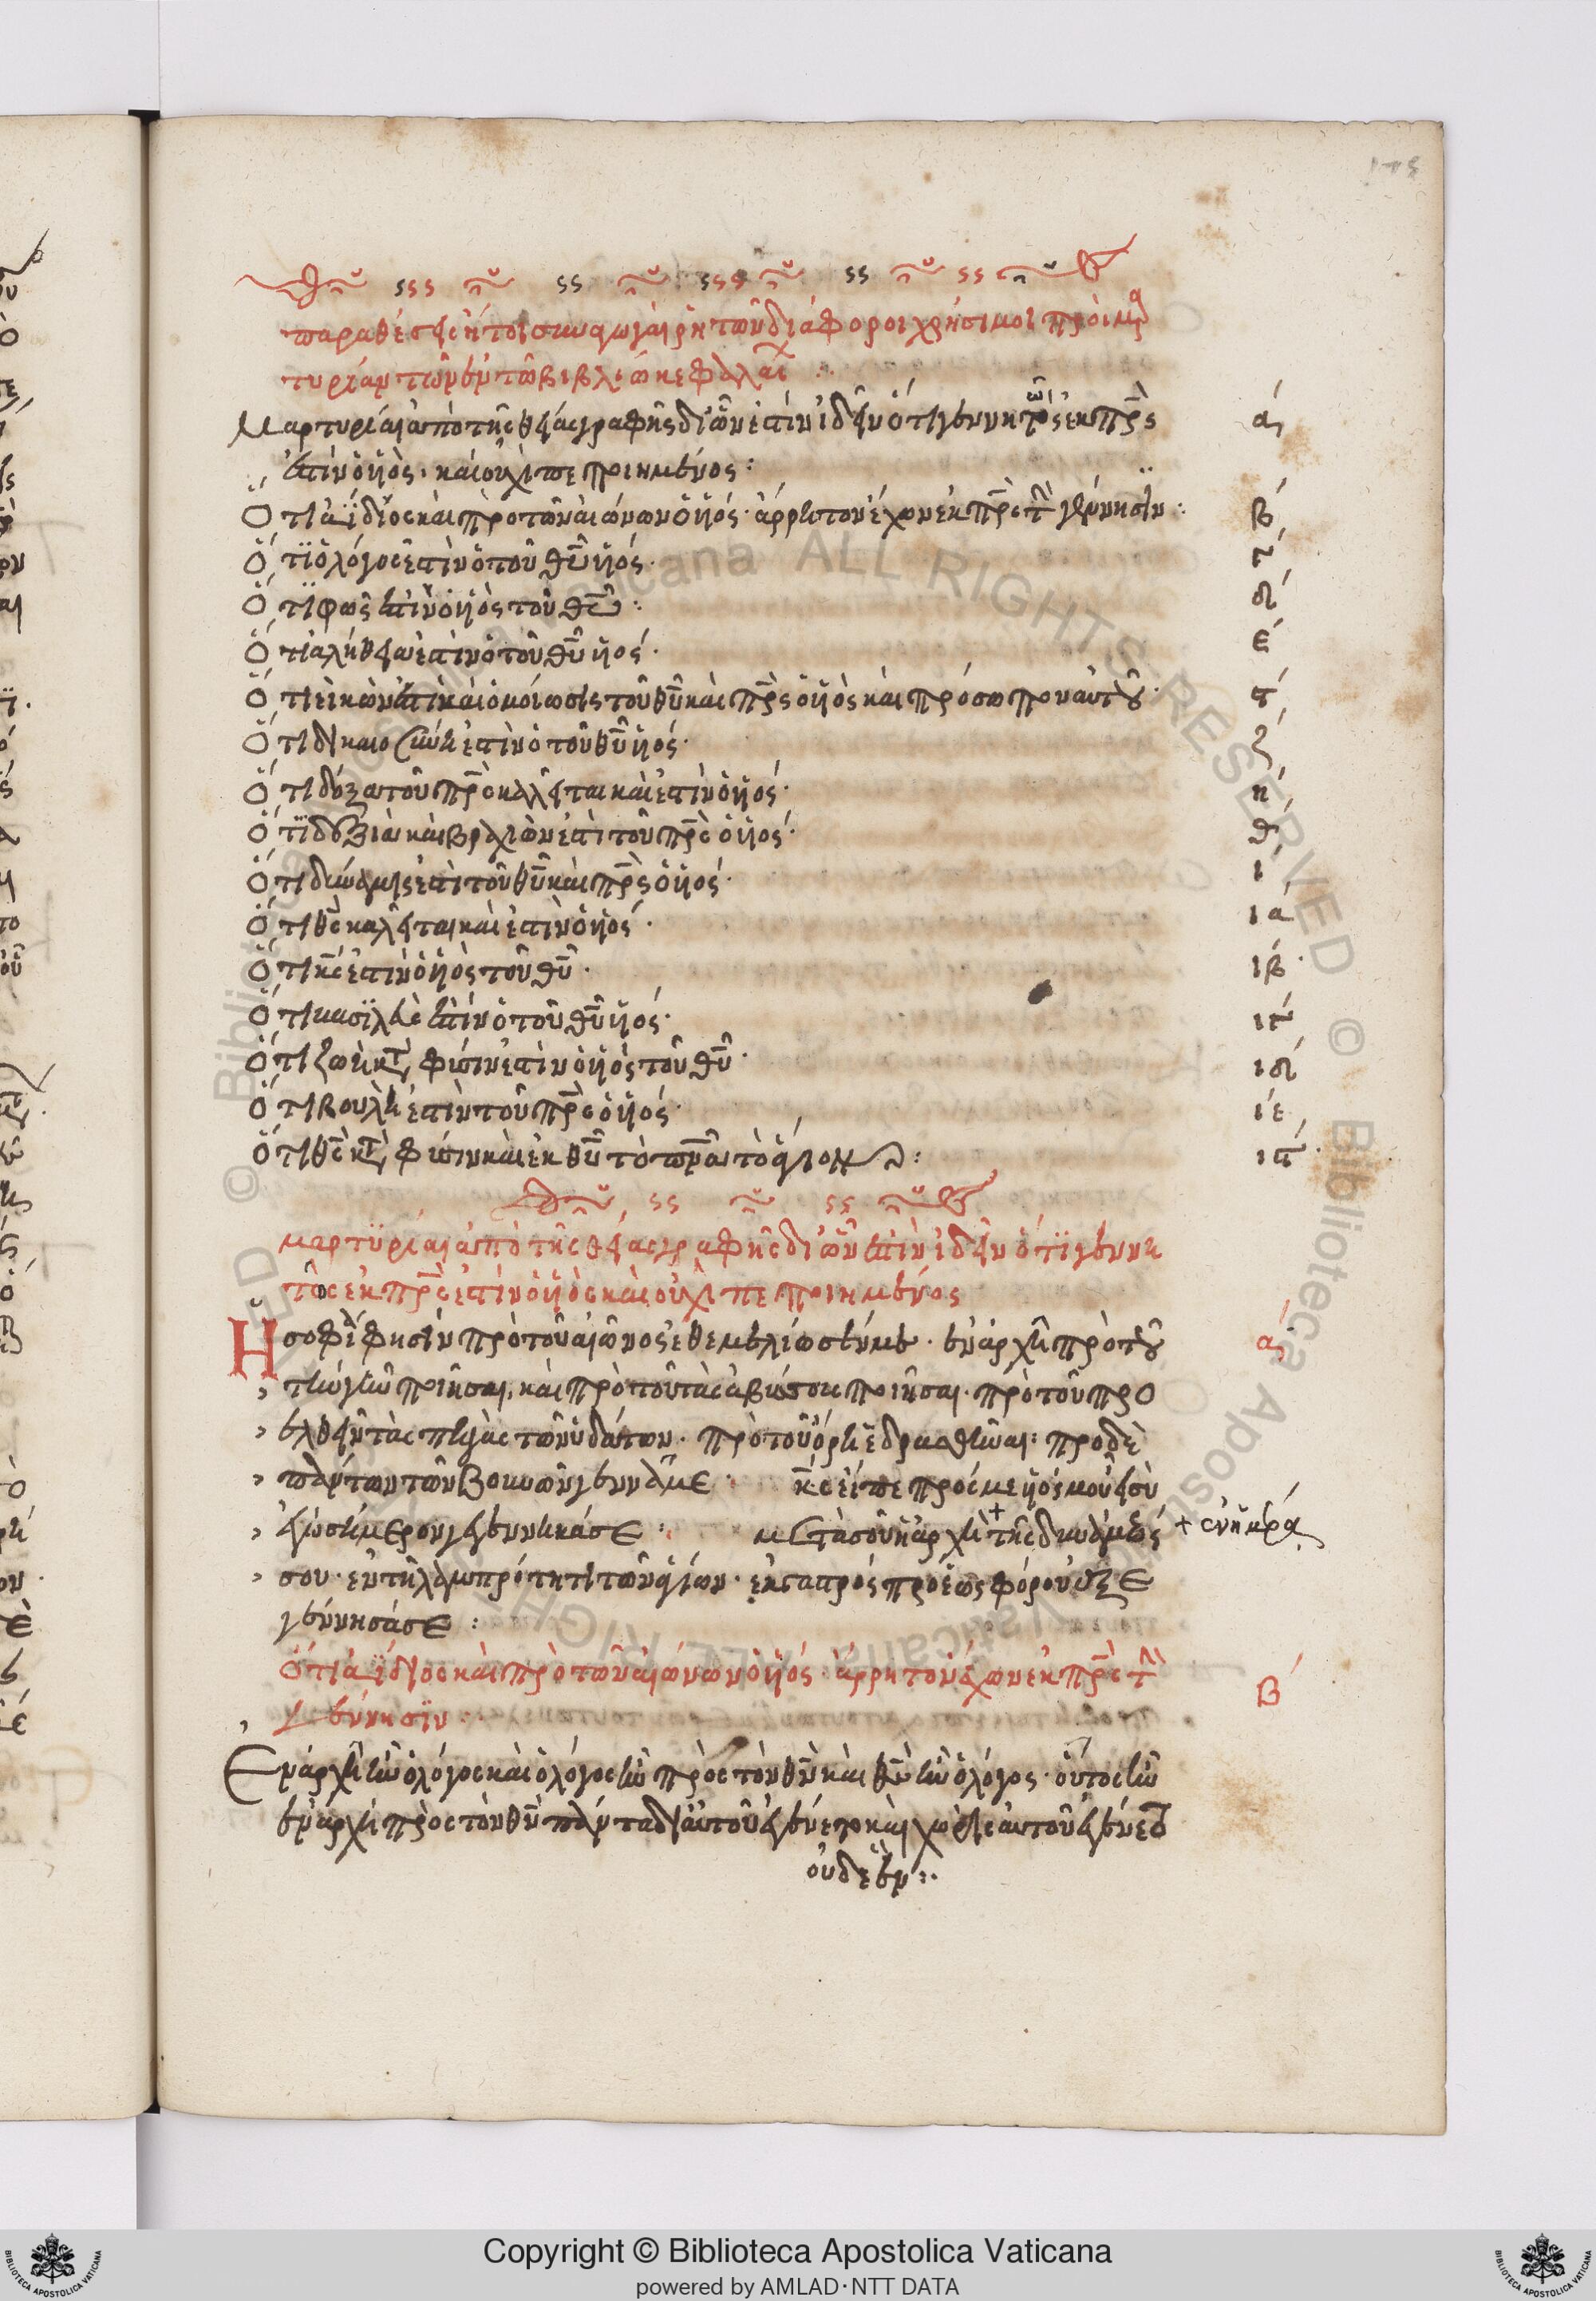 παραθέσεις ἤτοι συναγωγαὶ ῥητῶν διάφοροι χρήσιμοι πρὸς μαρ
τυρίαν τῶν ἐν τῶ βιβλίω κεφαλαί
Μαρτυρίαι ἀπὸ τῆς θείας γραφῆς δι' ὧν ἐστὶν ἰδεῖν ὅτι γεννητὸς ἐκ πρ̅ς α
ἐστὶν ὁ υἱὸς· καὶ οὐχὶ πεποιημένος:
Ὅτι ἀΐδιος καὶ πρὸ τῶν αἰώνων ὁ υἱός· ἄρρητον ἔχων ἐκ πρ̅ς τὴν γέννησιν: β
Ὅτι ὁ λόγος ἐστὶν ὁ τοῦ θυ̅ υἱός· γ
Ὅτι φῶς ἐστὶν ὁ υἱὸς τοῦ θυ̅: δ
Ὅτι ἀλήθεια ἐστὶν ὁ τοῦ θυ̅ υἱός· ε
Ὅτι εἰκὼν ἐστὶ καὶ ὁμοίωσις τοῦ θυ̅ καὶ πρ̅ς ὁ υἱὸς καὶ πρόσωπον αὐτοῦ· ϛ
Ὅτι δικαιοσύνη ἐστὶν ὁ τοῦ θυ̅ υἱός· ζ
Ὅτι δόξα τοῦ πρ̅ς καλεῖται καὶ ἐστὶν ὁ υἱός· η
Ὅτι δεξιὰ καὶ βραχίων ἐστὶ τοῦ πρ̅ς ὁ υἱός· θ
Ὅτι δύναμις ἐστὶ τοῦ θυ̅ καὶ πρ̅ς ὁ υἱός· ι
Ὅτι θς̅ καλεῖται καὶ ἐστὶν ὁ υἱός· ια
Ὅτι κς̅ ἐστὶν ὁ υἱὸς τοῦ θυ̅· ιβ
Ὅτι βασιλεὺς ἐστὶν ὁ τοῦ θυ̅ υἱός· ιγ
Ὅτι ζωὴ κατὰ φύσιν ἐστὶν ὁ υἱὸς τοῦ θυ̅· ιδ
Ὅτι βουλὴ ἐστὶν τοῦ πρ̅ς ὁ υἱός· ιε
Ὅτι θς̅ κατὰ φύσιν καὶ ἐκ θυ̅ τὸ πνα̅ τὸ ἅγιον: ιϛ
μαρτυρίαι ἀπὸ τῆς θείας γραφῆς δι' ὧν ἐστὶν ἰδεῖν ὅτι γεννη
τὸς ἐκ πρ̅ς ἐστὶν ὁ υἱὸς καὶ οὐχὶ πεποιημένος
Ἡ σοφία φησὶν πρὸ τοῦ αἰῶνος ἐθεμελίωσέν με· ἐν ἀρχῆ πρὸ τοῦ α
τὴν γῆν ποιῆσαι, καὶ πρὸ τοῦ τὰς ἀβύσσους ποιῆσαι· πρὸ τοῦ προ
ελθεῖν τὰς πηγὰς τῶν ὑδάτων· πρὸ τοῦ ὄρη ἑδρασθῆναι: πρὸ δὲ
πάντων τῶν βουνῶν γεννᾶ με· κς̅ εἶπε πρός με υἱός μου εἶ σὺ
ἐγὼ σήμερον γεγέννηκά σε: μετὰ σοῦ ἡ ἀρχὴ + τῆς δυνάμεώς + ἐν ἡμέρα
σου· ἐν τῆ λαμπρότητι τῶν ἁγίων· ἐκ γαστρὸς πρὸ ἑωσφόρου ἐξε
γέννησά σε:
Ὅτι ἀΐδιος καὶ πρὸ τῶν αἰώνων ὁ υἱός ἄρρητον ἔχων ἐκ πρ̅ς τὴν β
γέννησιν
Ἐν ἀρχῆ ἦν ὁ λόγος καὶ ὁ λόγος ἦν πρὸς τὸν θν̅ καὶ θς̅ ἦν ὁ λόγος· οὗτος ἦν
ἐν ἀρχῆ πρὸς τὸν θν̅ πάντα δι' αὐτοῦ ἐγένετο καὶ χωρὶς αὐτοῦ ἐγένετο
οὐδὲ ἕν:·
Copyright © Biblioteca Apostolica Vaticana
powered by AMLAD·NTT DATA